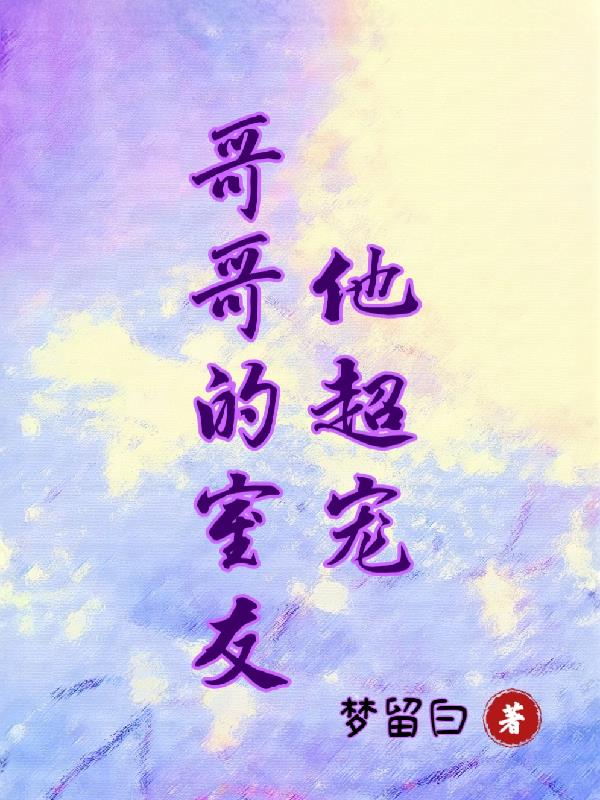 哥哥的室友
他超宠
梦留白 著